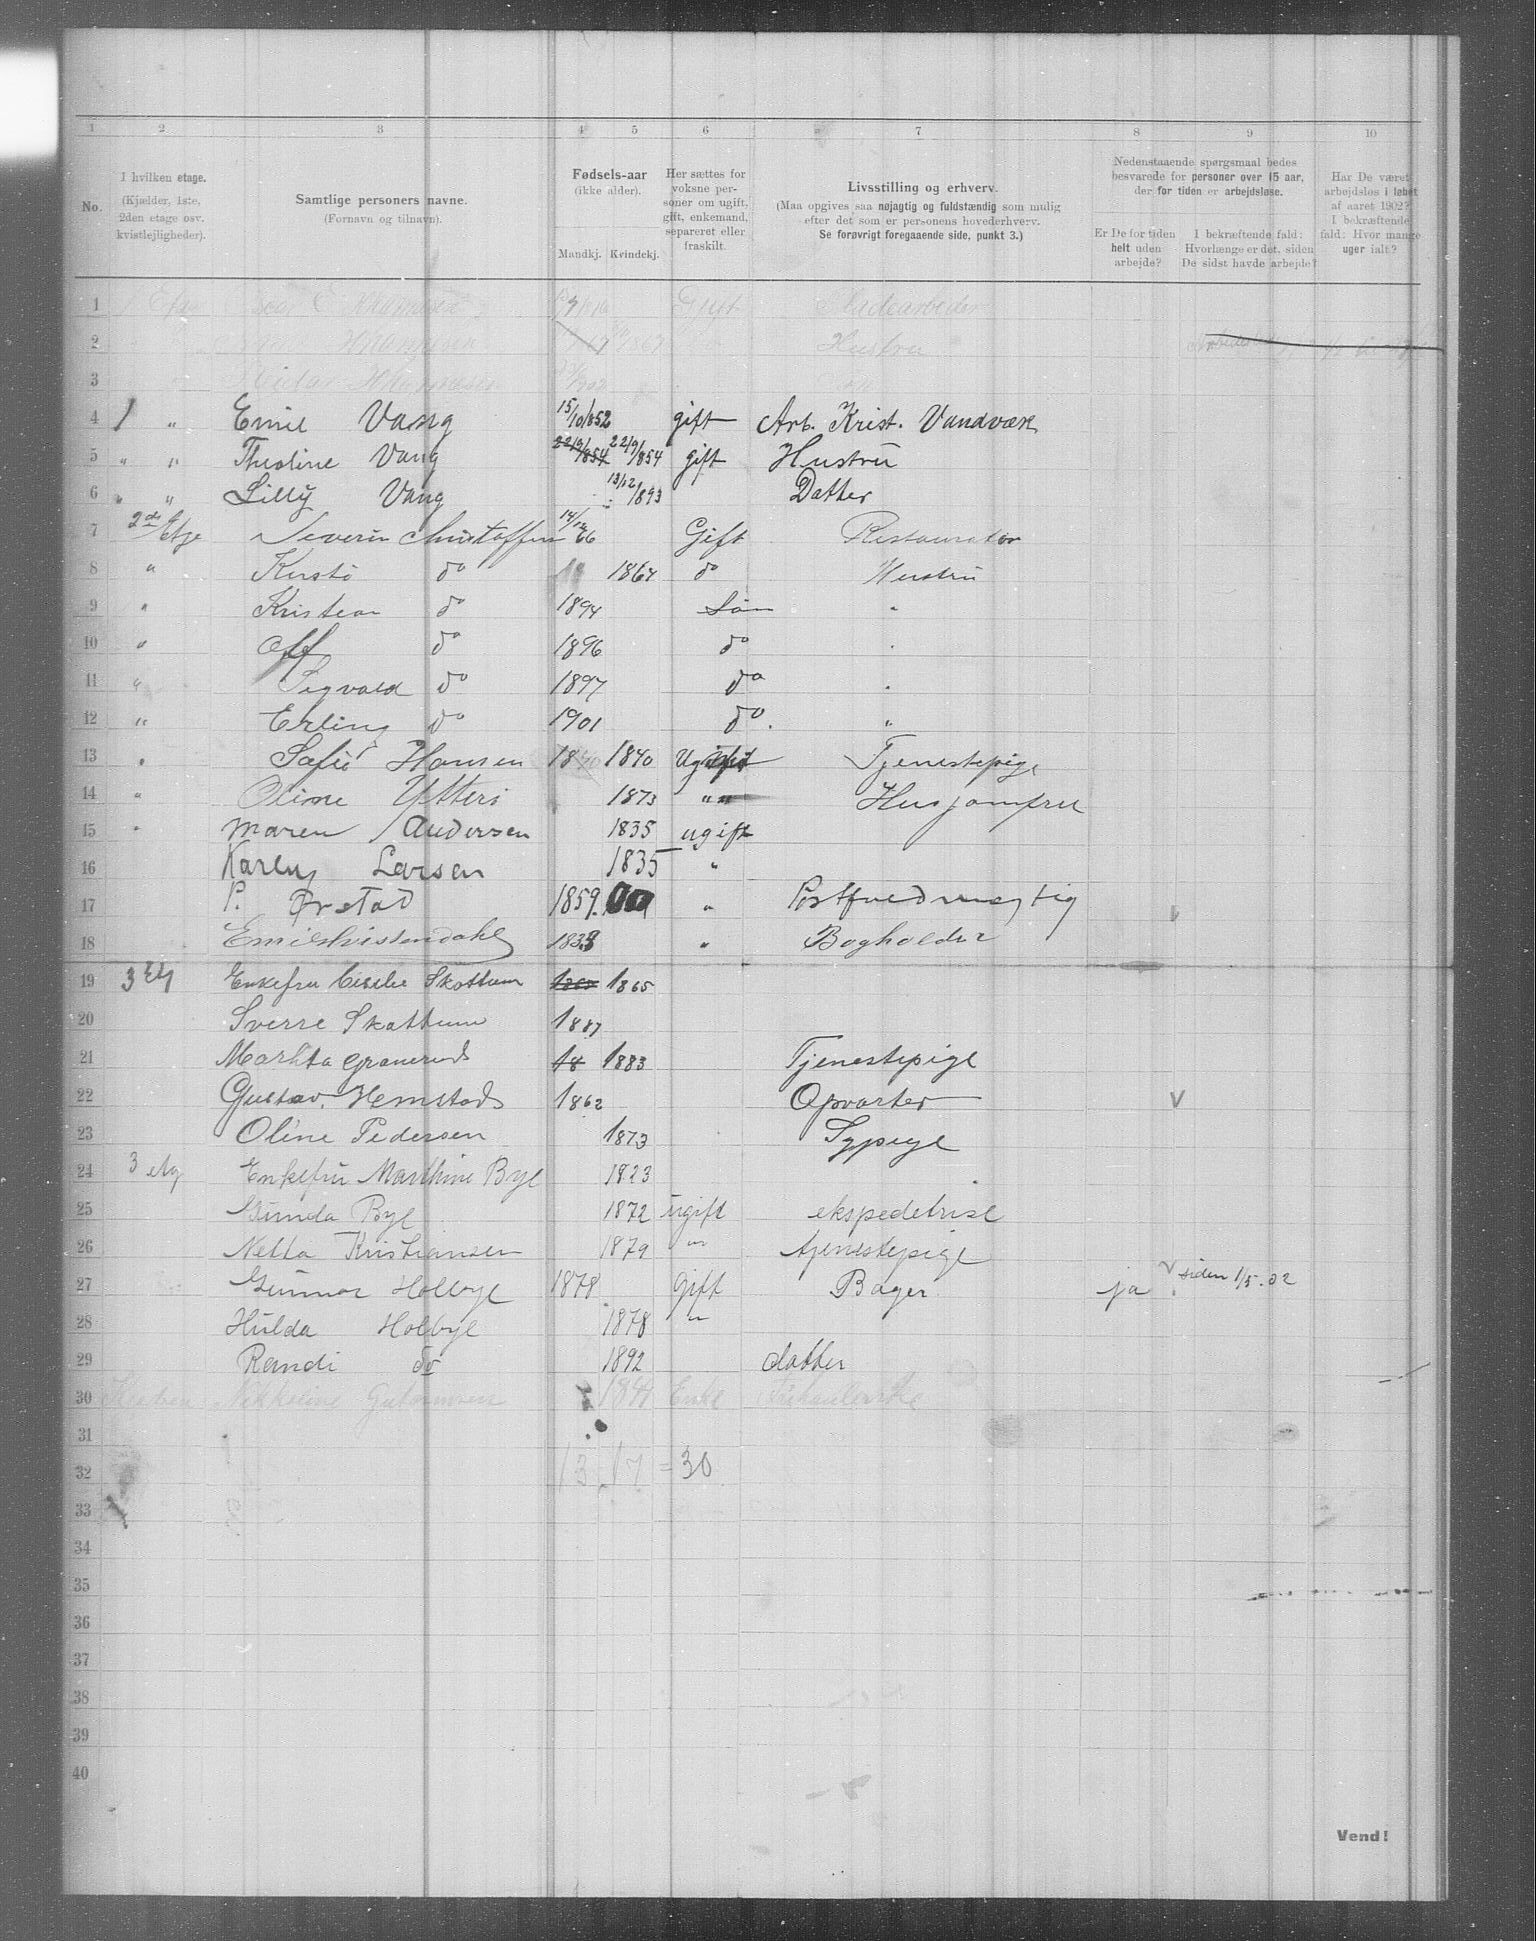 1 2 3 4 5 6 7 8 9 10
No.
I hvilken etage.
(Kjælder, 1ste,
2den etage osv.
kvistlejligheder).
Samtlige personers navne.
(Fornavn og tilnavn).
Fødsels-aar
(ikke alder).
Mandkj. Kvindekj.
Her sættes for
voksne per-
soner om ugift,
gift, enkemand,
separeret eller
fraskilt.
Livsstilling og erhverv.
(Maa opgives saa nøjagtig og fuldstændig som mulig
efter det som er personens hovederhverv.
Se forøvrigt foregaaende side, punkt 3.)
Nedenstaaende spørgsmaal bedes
besvarede for personer over 15 aar,
der for tiden er arbejdsløse.
Er De for tiden
helt uden
arbejde?
I bekræftende fald:
Hvorlænge er det, siden
De sidst havde arbejde?
Har De været
arbejdsløs i løbet
af aaret 1902?
I bekræftende
fald: Hvor mange
uger ialt?
1 Gift
2 Hustru
3
4 1 " Emil Vang 15/10/852 gift Arb. Krist. Vandværk
5 " " Theoline Vang 22/9/854 22/9/854 gift Hustru
6 " " Lilly Vang 13/12/893 Datter
7 2den Etge Severin Christoffersen 14/12 66 Gift Restauratør
8 " do 1864 do Hustru
9 " Kristian do 1894 Søn "
10 " do 1896 do "
11 " Sigvald do 1897 do "
12 " Erling do 1901 do. "
13 " Sofie Hansen 1840 1840 Ugift Tjenestepige
14 " Oline Ytteri 1873 " Husjomfru
15 " Maren Andersen 1835 ugift
16 Karen Larsen 1835 "
17 P. Ørstad 1859. "
18 Emil Hvistendahl 1838 " Bogholder
19 3 Etg Enkefru Cecilie Skattum 1865 1865
20 Sverre Skattum 1887
21 Martha Granerud 18 1883 Tjenestepige
22 Gustav. Hemstad 1862 Opvarter V
23 Oline Pedersen 1873 Sypige
24 3 etg Enkefru Marthine Bye 1823
25 Gunda Bye 1872 ugift ekspedetrise
26 Netta Kristiansen 1879 " tjenestepige
27 Gunnar Holbye 1878 Gift Bager ja V siden 1/5.02
28 Hulda Holbye 1878 "
29 Randi do 1892 datter
30 Enke
31
32 13 17 = 30
33
34
35
36
37
38
39
40
Vend!